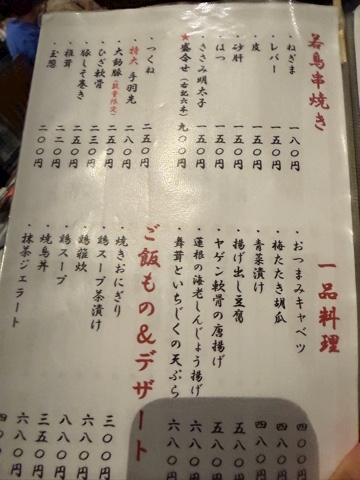 若鳥串焼き
・ねぎま 一八〇円
・レバー 一五〇円
・皮 一五〇円
・砂肝 一五〇円
・はつ 一五〇円
・ささみ明太子
★盛合せ(右記六本) 九〇〇円
・つくね 二五〇円
・特大 手羽先 二八〇円
・大動脈(数量限定) 二五〇円
・ひざ軟骨 二五〇円
・豚しそ巻き 二五〇円
・椎茸 二二〇円
・玉葱 二〇〇円
一品料理
・おつまみキャベツ 四〇〇円
・梅たたき胡瓜 四八〇円
・青菜漬け 四八〇円
・揚げ出し豆腐 五八〇円
・ヤゲン軟骨の唐揚げ 五八〇円
・蓮根の海老しんじょう揚げ 六八〇円
・舞茸といちじくの天ぷら 六八〇円
ご飯もの&デザート
・焼きおにぎり 三〇〇円
・鶏スープ茶漬け 六八〇円
・鶏雑炊 八八〇円
・鶏スープ 三五〇円
・焼鳥丼 六八〇円
・抹茶ジェラート